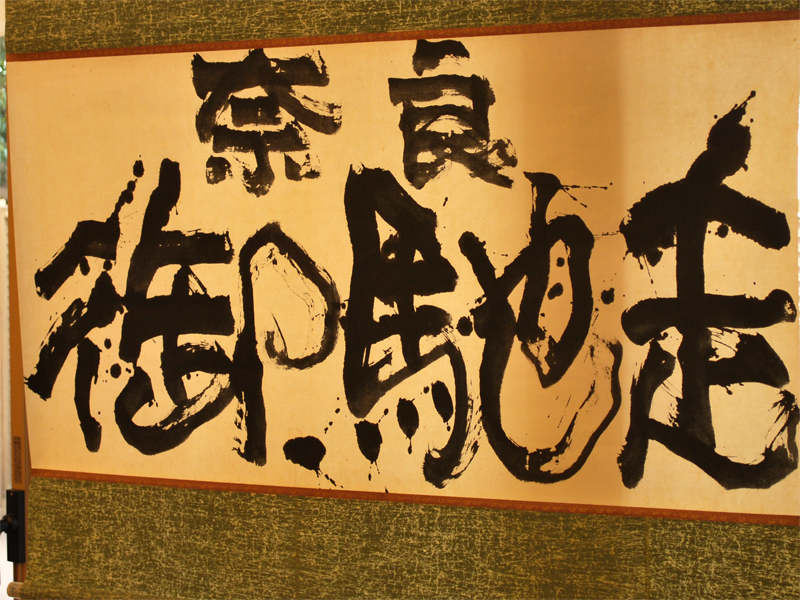 奈良
御馳走